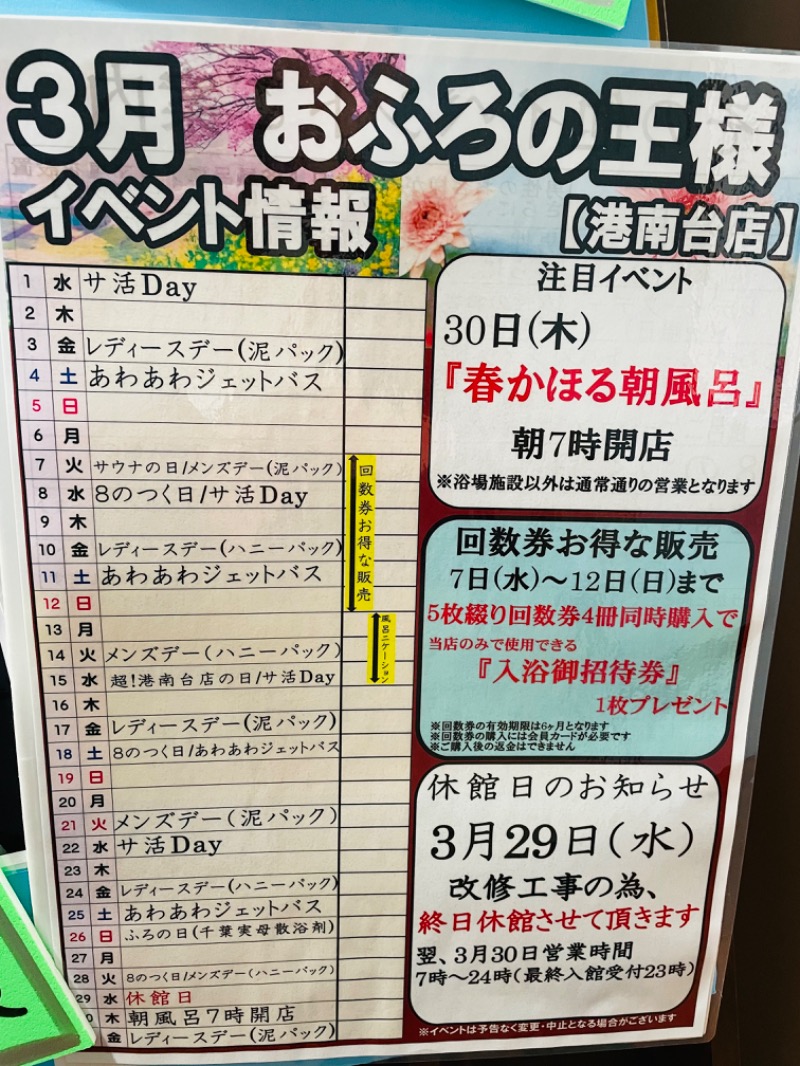 3月 おふろの王様
イベント情報
【港南台店】
1 水 サ活Day
2 木
3 金 レディースデー(泥パック)
4 土 あわあわジェットバス
5 日
6 月
7 火 サウナの日/メンズデー(泥パック)
8 水 8のつく日/サ活Day
9 木
10 金 レディースデー(ハニーパック)
11 土 あわあわジェットバス
12 日
13 月
14 火 メンズデー(ハニーパック)
15 水 超!港南台店の日/サ活Day
16 木
17 金 レディースデー(泥パック)
18 土 8のつく日/あわあわジェットバス
19 日
20 月
21 火 メンズデー(泥パック)
22 水 サ活Day
23 木
24 金 レディースデー(ハニーパック)
25 土 あわあわジェットバス
26 日 ふろの日(千葉実母散浴剤)
27 月
28 火 8のつく日/メンズデー(ハニーパック)
29 水 休館日
0 木 朝風呂7時開店
金 レディースデー(泥パック)
回数券お得な販売
風呂ニケーション
注目イベント
30日(木)
『春かほる朝風呂』
朝7時開店
※浴場施設以外は通常通りの営業となります
回数券お得な販売
7日(水)〜12日(日)まで
5枚綴り回数券4冊同時購入で
当店のみで使用できる
『入浴御招待券』
1枚プレゼント
※回数券の有効期限は6ヶ月となります
※回数券の購入には会員カードが必要です
※ご購入後の返金はできません
休館日のお知らせ
3月29日(水)
改修工事の為、
終日休館させて頂きます
翌、3月30日営業時間
7時〜24時(最終入館受付23時)
※イベントは予告なく変更・中止となる場合がございます